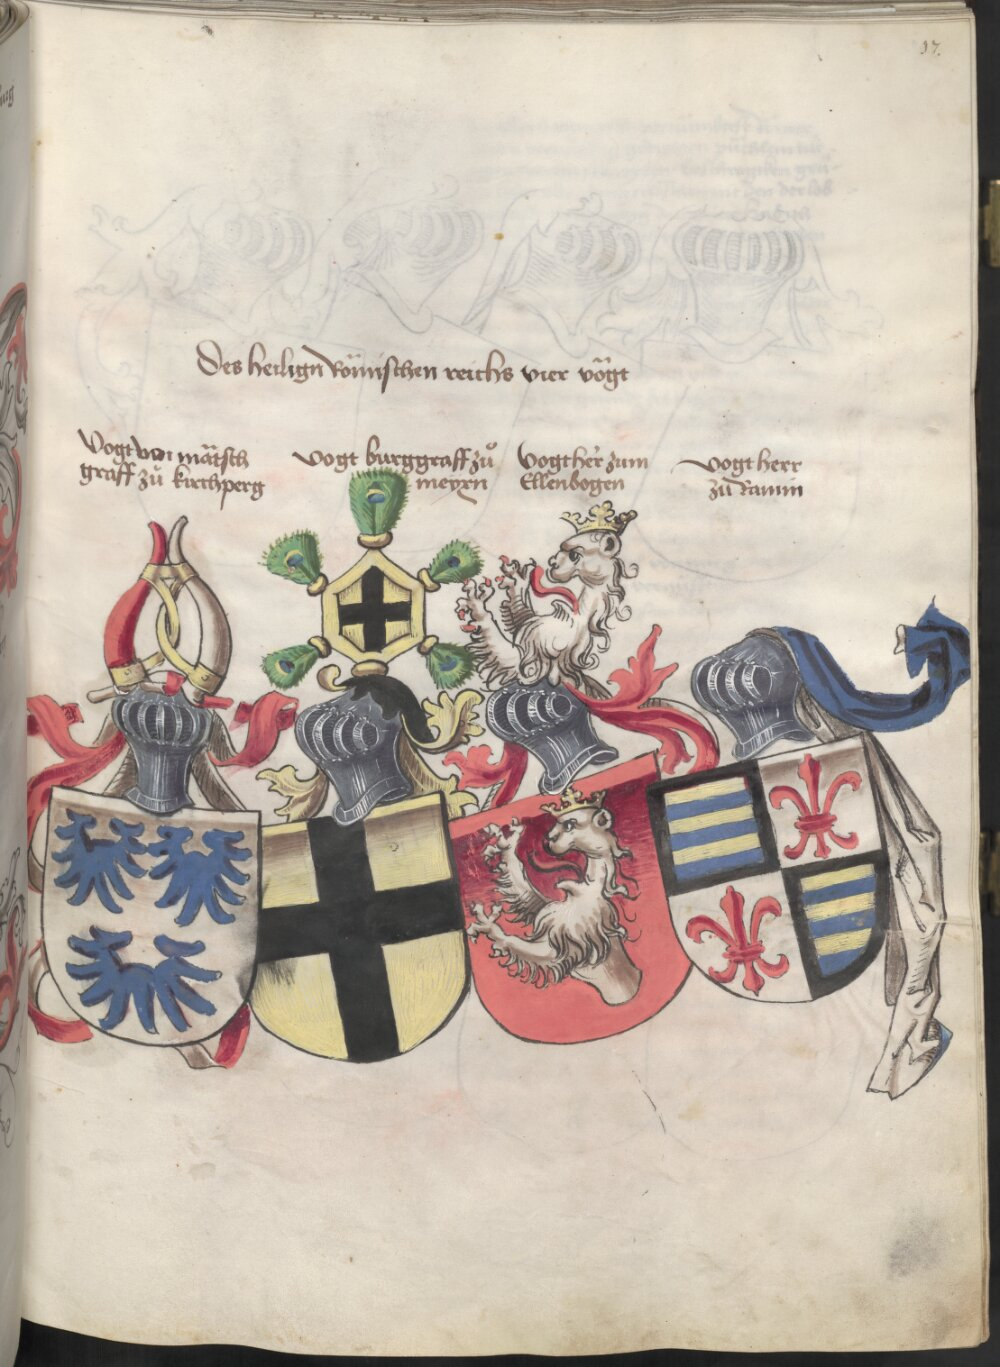 97.
Des heilign Römischen reichs vier vögt
Vogt von mätsch
graff zů kirchperg
vogt burggraff zů
meyxn
Vogt her zum
Ellenbogen
vogt herr
zů Ramin